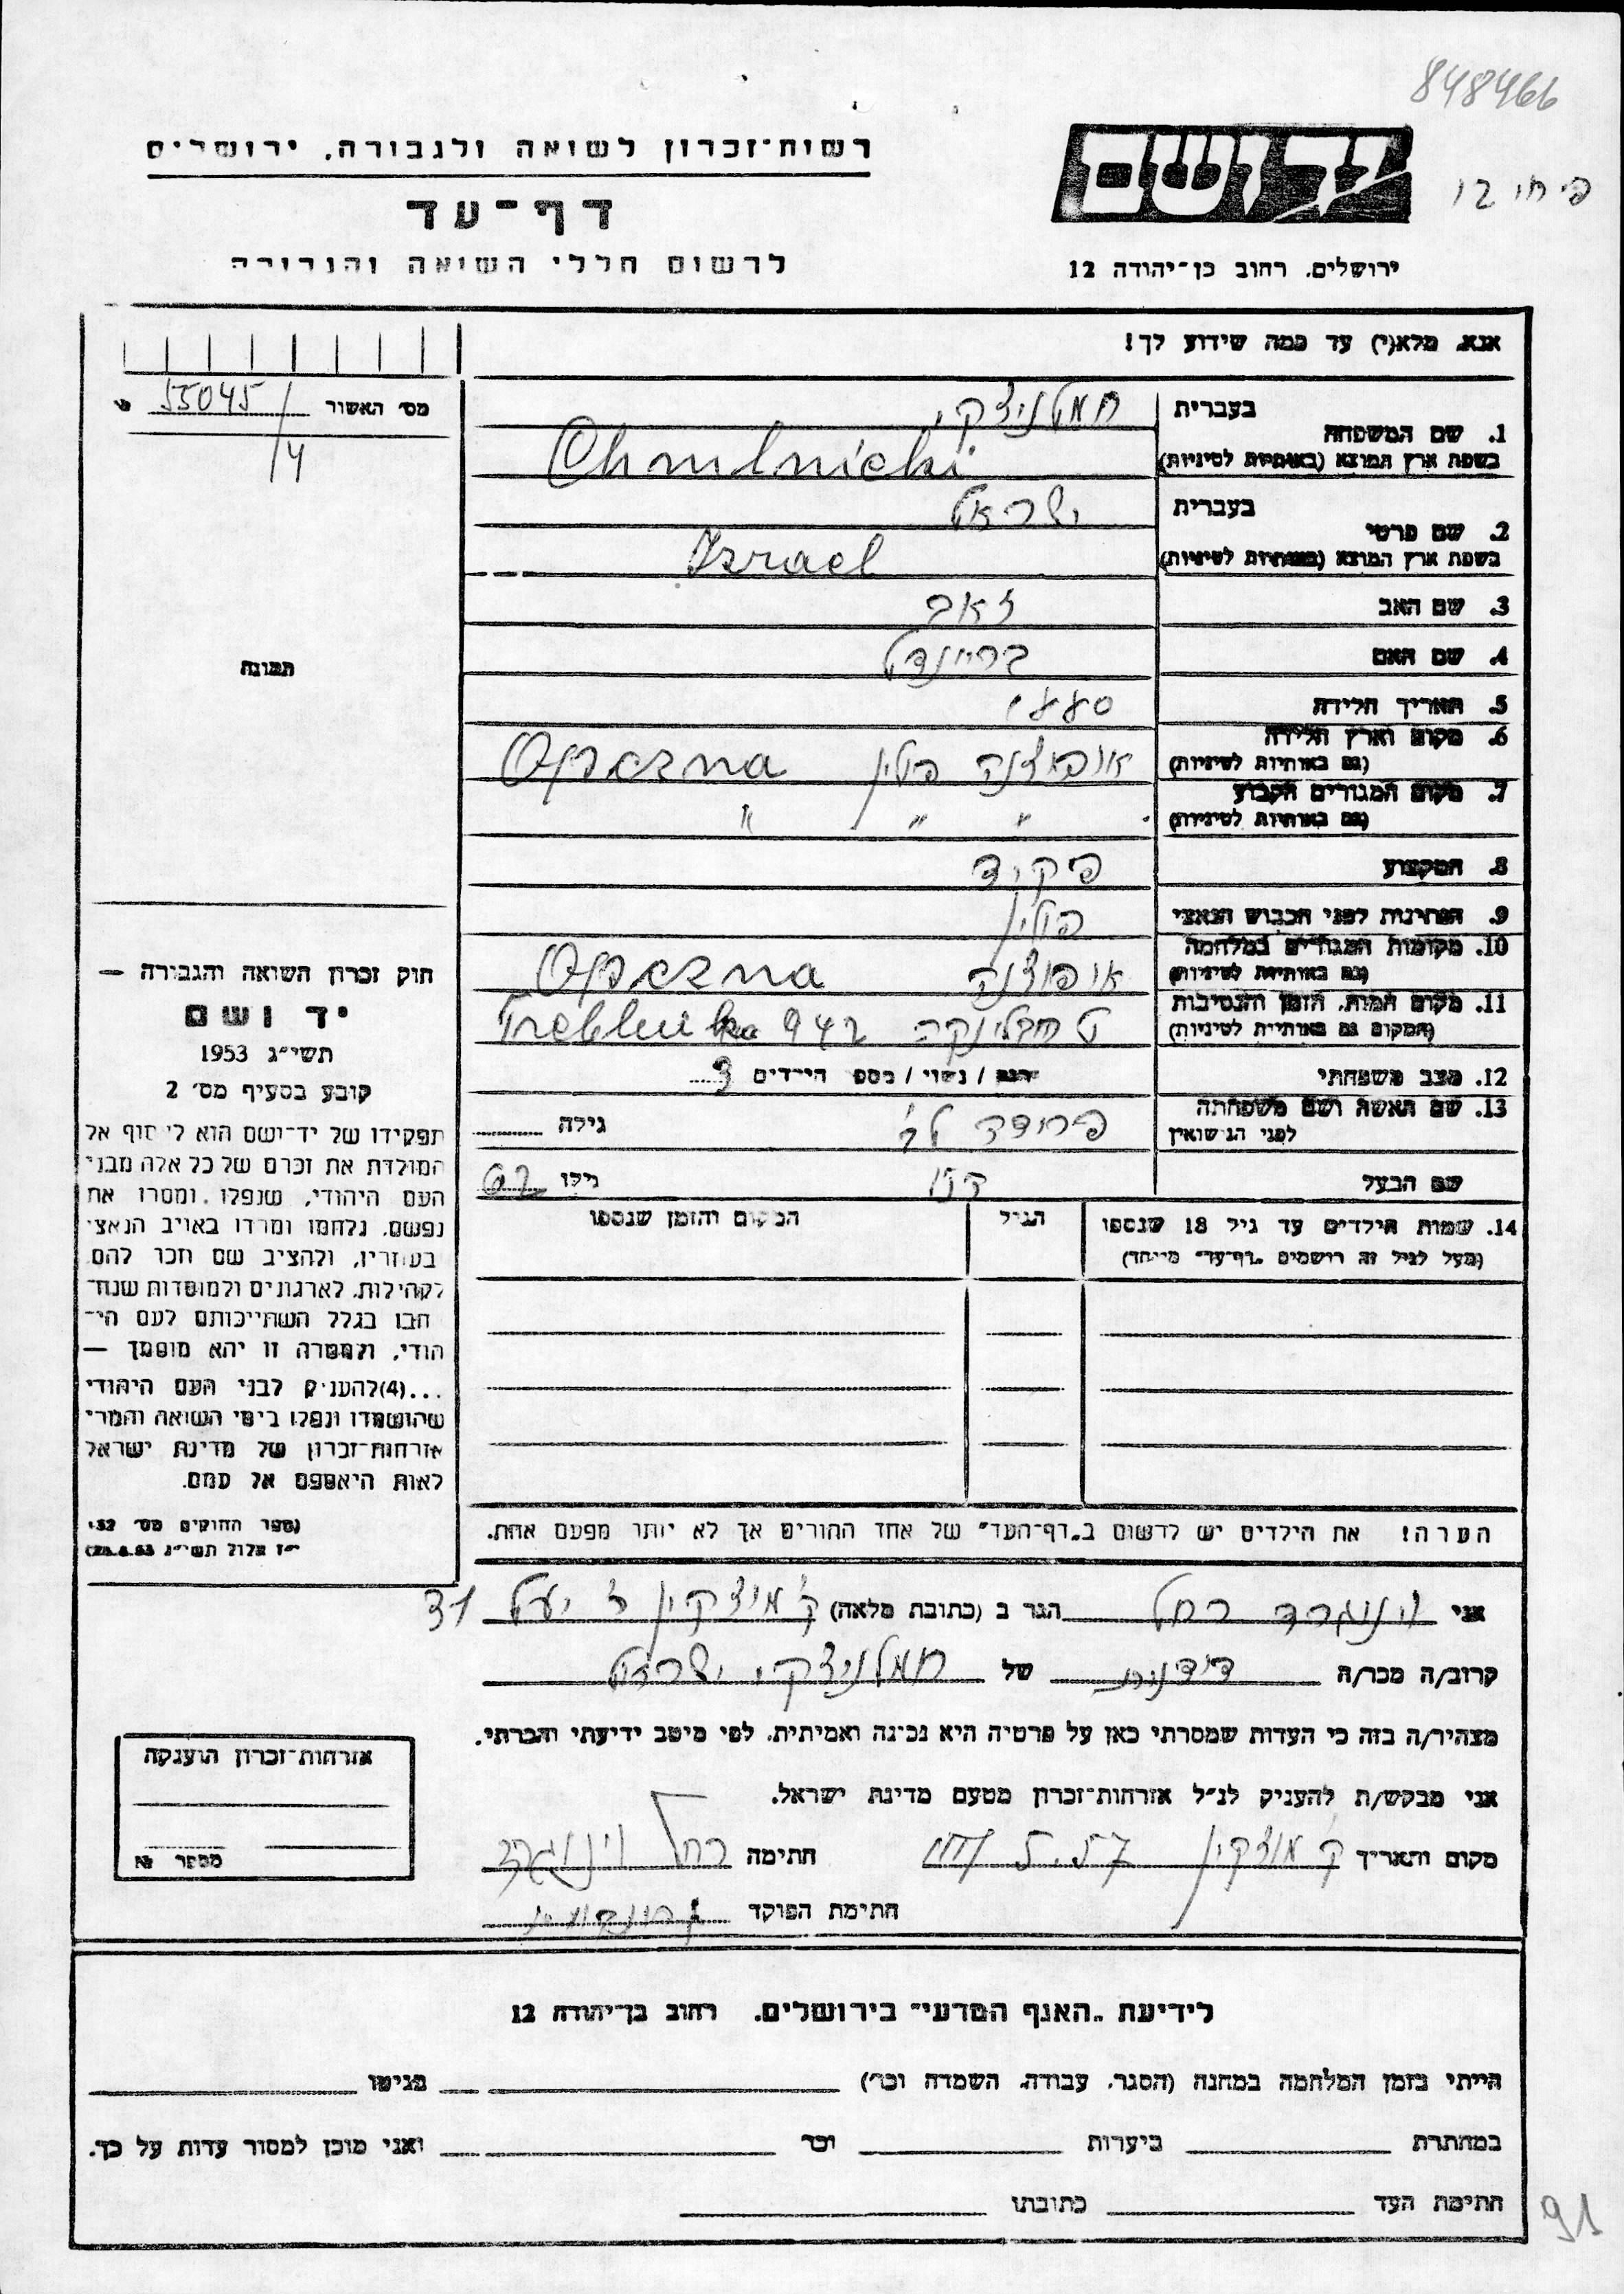 848466
רשות־זכרון לשואה ולגבורה, ירושלים
יד ושם
דף־עד
לרשום חללי השואה והגבורה
ירושלים, רחוב בן־יהודה 12
אנא, מלא(י) עד כמה שידוע לך!
מס׳ האשור 55045/4
1. שם המשפחה בעברית חמלניצקי
בשפת ארץ המוצא (באותיות לטיניות) Chmlnicki
2. שם פרטי בעברית ישראל
בשפת ארץ המוצא (באותיות לטיניות) Izrael
3. שם האב זאב
4. שם האם בריינדל
5. תאריך הלידה 1880
6. מקום וארץ הלידה אופוצנה פולין Opozna
(גם באותיות לטיניות)
7. מקום המגורים הקבוע " " "
(גם באותיות לטיניות)
8. המקצוע פקיד
9. הנתינות לפני הכבוש הנאצי פולין
10. מקומות המגורים במלחמה אופוצנה Opozna
(גם באותיות לטיניות)
11. מקום המות, הזמן והנסיבות טרבלינקה 942 Treblinka
(המקום גם באותיות לטיניות)
12. מצב משפחתי רווק / נשוי / מספר הילדים 3
13. שם האשה ושם משפחתה
לפני הנישואין גילה
שם הבעל גילו 62
14. שמות הילדים עד גיל 18 שנספו הגיל המקום והזמן שנספו
(מעל לגיל זה רושמים "דף־עד" מיוחד)
הערה! את הילדים יש לרשום ב"דף־העד" של אחד ההורים אך לא יותר מפעם אחת.
תמונה
חוק זכרון השואה והגבורה —
יד ושם
תשי״ג 1953
קובע בסעיף מס׳ 2
תפקידו של יד־ושם הוא לאסוף אל
המולדת את זכרם של כל אלה מבני
העם היהודי, שנפלו, ומסרו את
נפשם, נלחמו ומרדו באויב הנאצי
בעוזריו, ולהציב שם וזכר להם
לקהילות, לארגונים ולמוסדות שנח־
רבו בגלל השתייכותם לעם הי־
הודי, ולמטרה זו יהא מוסמך —
...(4) להעניק לבני העם היהודי
שהושמדו ונפלו בימי השואה והמרי
אזרחות־זכרון של מדינת ישראל
לאות היאספם אל עמם.
(ספר החוקים מס׳ 132
י״ז אלול תשי״ג 28.8.53)
אני וינוגרד רחל הגר ב (כתובת מלאה) ק׳ מוצקין 31
קרוב/ה מכר/ה ידידות של חמלניצקי ישראל
מצהיר/ה בזה כי העדות שמסרתי כאן על פרטיה היא נכונה ואמיתית, לפי מיטב ידיעתי והכרתי.
אני מבקש/ת להעניק לנ״ל אזרחות־זכרון מטעם מדינת ישראל.
מקום ותאריך ק׳ מוצקין 5.57 חתימה רחל וינוגרד
חתימת הפוקד
אזרחות־זכרון הוענקה
מספר №
לידיעת "האגף המדעי" בירושלים, רחוב בן־יהודה 12
הייתי בזמן המלחמה במחנה (הסגר, עבודה, השמדה וכו׳) בגיטו
במחתרת ביערות וכו׳ ואני מוכן למסור עדות על כך.
חתימת העד כתובתו
91